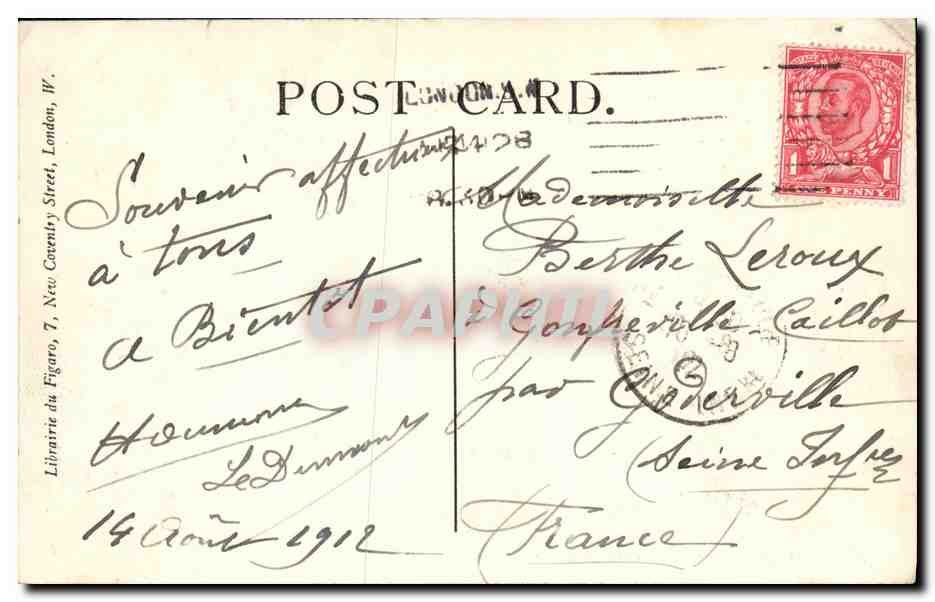 POST CARD.
Librairie du Figaro, 7, New Coventry Street, London, W.
LONDON. S.W
1 PENNY 1
Souvenir affectueux
à tous
a Bientot
Le Dumont
14 Août 1912
Mademoiselle
Berthe Leroux
à Gonfreville-Caillot
par Goderville
(Seine Infre
France
CPAPHIL